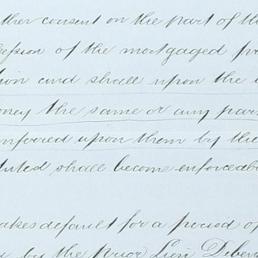 ther consent on the part of th
session of the mortgaged pr
tion and shall upon the
oney the same or any par
onferred upon them by the
tuted, shall become enforceab
akes default for a period of
by the Prior Lien Deben